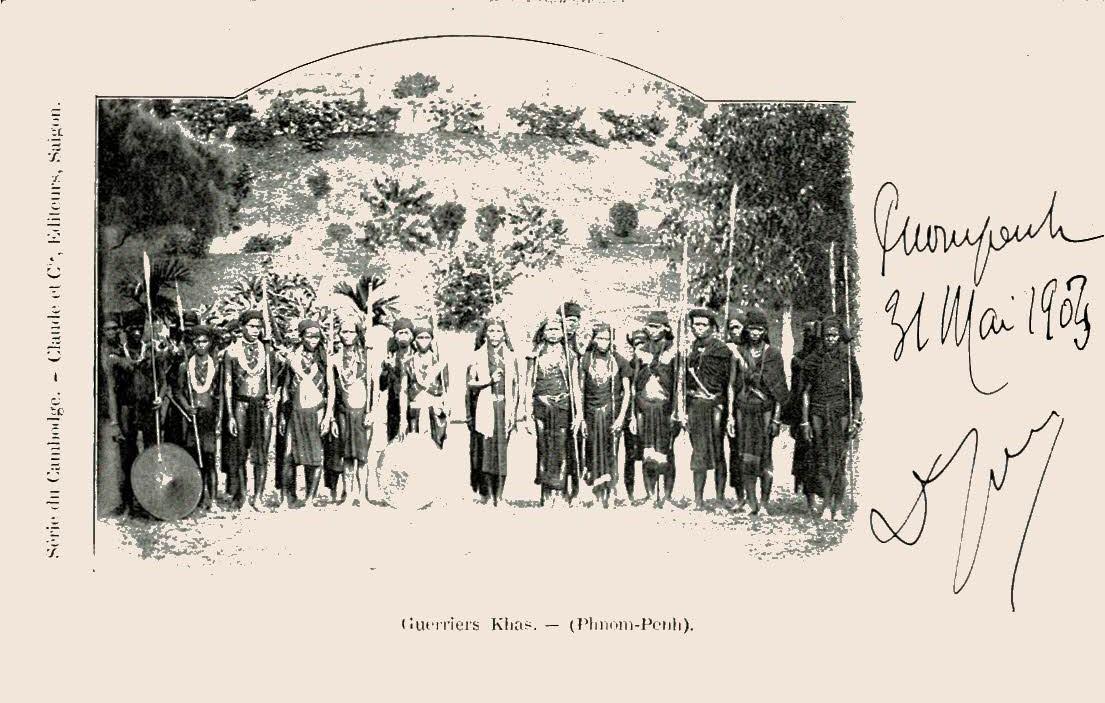 Série du Cambodge. – Claude et Cie, Editeurs, Saigon.
Pnompenh
31 Mai 1903
Guerriers Khas. — (Phnom-Penh).